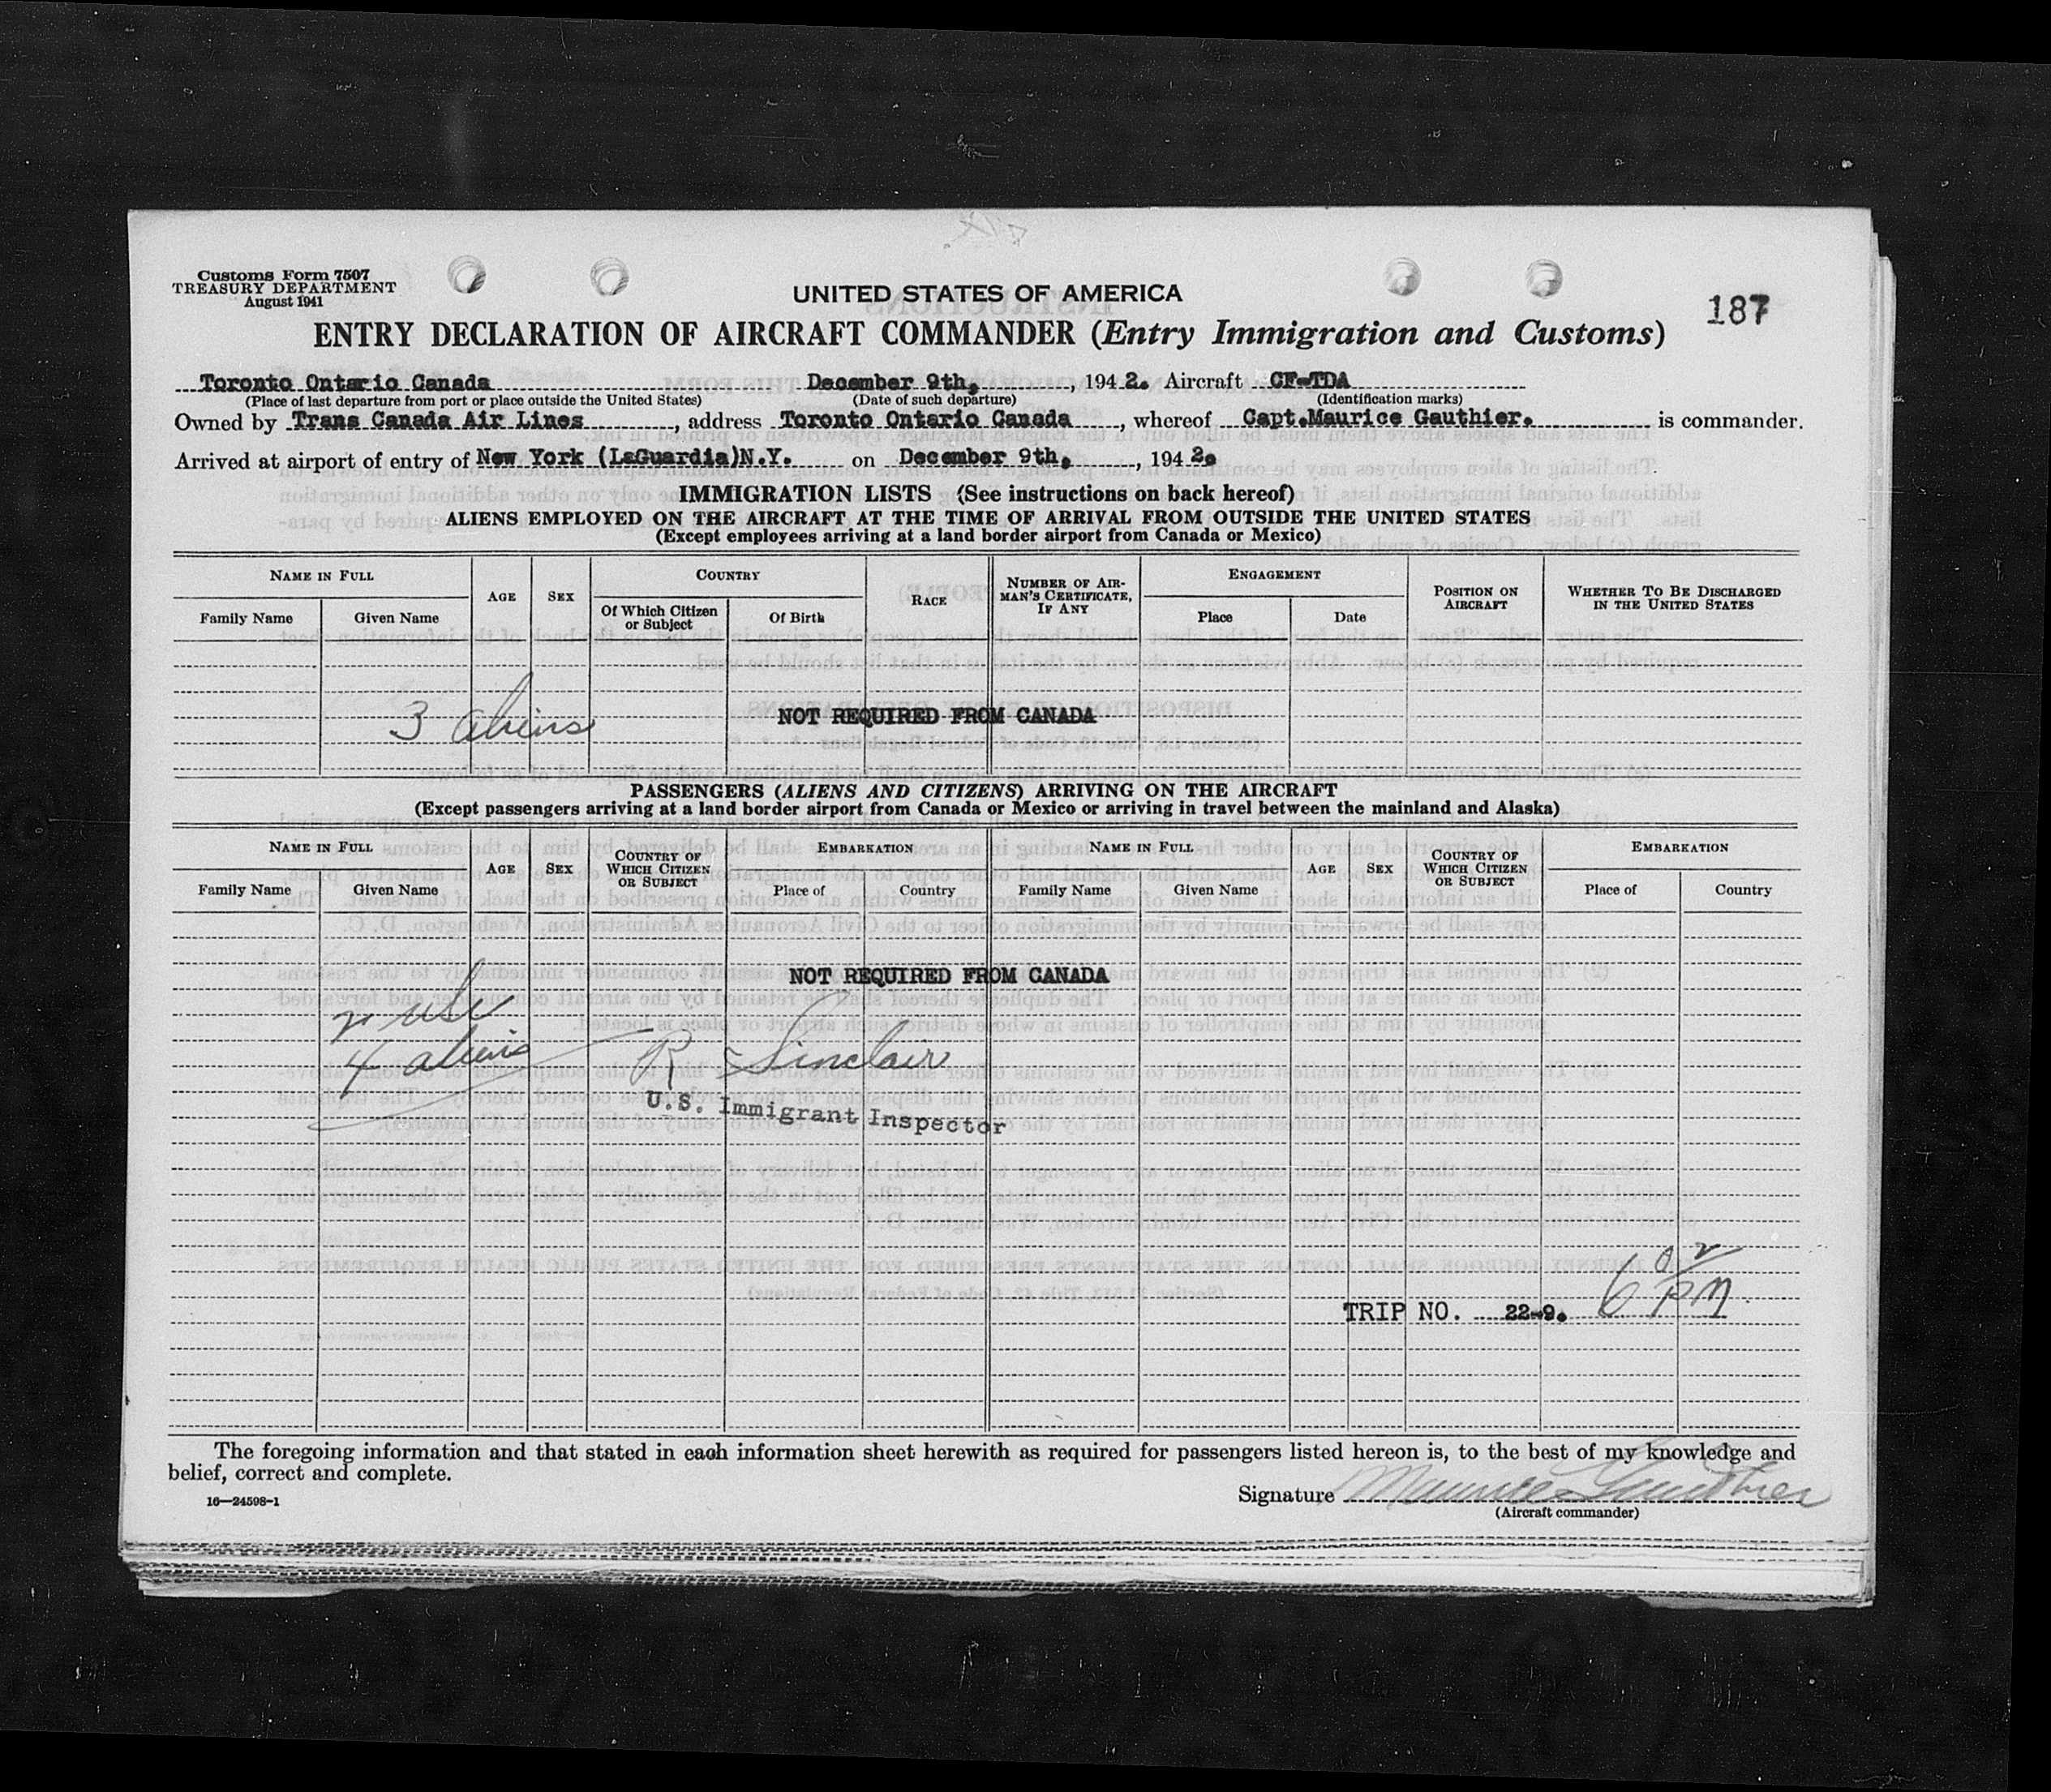 Customs Form 7507
TREASURY DEPARTMENT
August 1941
UNITED STATES OF AMERICA
187
ENTRY DECLARATION OF AIRCRAFT COMMANDER (Entry Immigration and Customs)
Toronto Ontario Canada December 9th, , 194 2. Aircraft CF-TDA
(Place of last departure from port or place outside the United States) (Date of such departure) (Identification marks)
Owned by Trans Canada Air Lines , address Toronto Ontario Canada , whereof Capt.Maurice Gauthier. is commander.
Arrived at airport of entry of New York (LaGuardia)N.Y. on December 9th, , 194 2.
IMMIGRATION LISTS (See instructions on back hereof)
ALIENS EMPLOYED ON THE AIRCRAFT AT THE TIME OF ARRIVAL FROM OUTSIDE THE UNITED STATES
(Except employees arriving at a land border airport from Canada or Mexico)
NAME IN FULL AGE SEX COUNTRY RACE NUMBER OF AIR-MAN'S CERTIFICATE, IF ANY ENGAGEMENT POSITION ON AIRCRAFT WHETHER TO BE DISCHARGED IN THE UNITED STATES
Family Name Given Name Of Which Citizen or Subject Of Birth Place Date
3 aliens NOT REQUIRED FROM CANADA
PASSENGERS (ALIENS AND CITIZENS) ARRIVING ON THE AIRCRAFT
(Except passengers arriving at a land border airport from Canada or Mexico or arriving in travel between the mainland and Alaska)
NAME IN FULL AGE SEX COUNTRY OF WHICH CITIZEN OR SUBJECT EMBARKATION NAME IN FULL AGE SEX COUNTRY OF WHICH CITIZEN OR SUBJECT EMBARKATION
Family Name Given Name Place of Country Family Name Given Name Place of Country
NOT REQUIRED FROM CANADA
4 aliens R Sinclair
U.S. Immigrant Inspector
TRIP NO. 22-9. 6 02 PM
The foregoing information and that stated in each information sheet herewith as required for passengers listed hereon is, to the best of my knowledge and
belief, correct and complete.
16—24598-1
Signature Maurice Gauthier
(Aircraft commander)